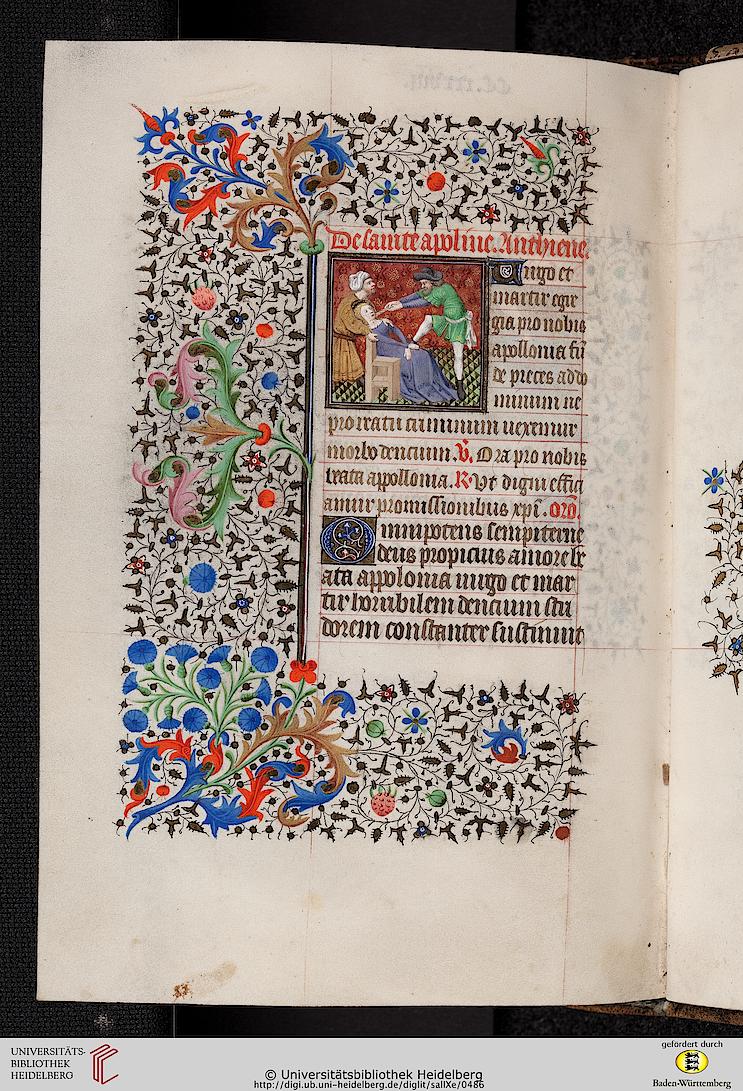 De sainte apoline. Anthiene.
Uirgo et
martir egre
gia pro nobis
apollonia fū
de preces ad do
minum ne
pro reatu criminum uexemur
morbo dencium. V. Ora pro nobis
beata appollonia. R. Vt digni effici
amur promissionibus xp̄i. oro.
Omnipotens sempiterne
deus propicius amore be
ata appolonia uirgo et mar
tir horribilem dencium stri
dorem constanter sustinuit
UNIVERSITÄTS-
BIBLIOTHEK
HEIDELBERG
© Universitätsbibliothek Heidelberg
http://digi.ub.uni-heidelberg.de/diglit/sallXe/0486
gefördert durch
Baden-Württemberg